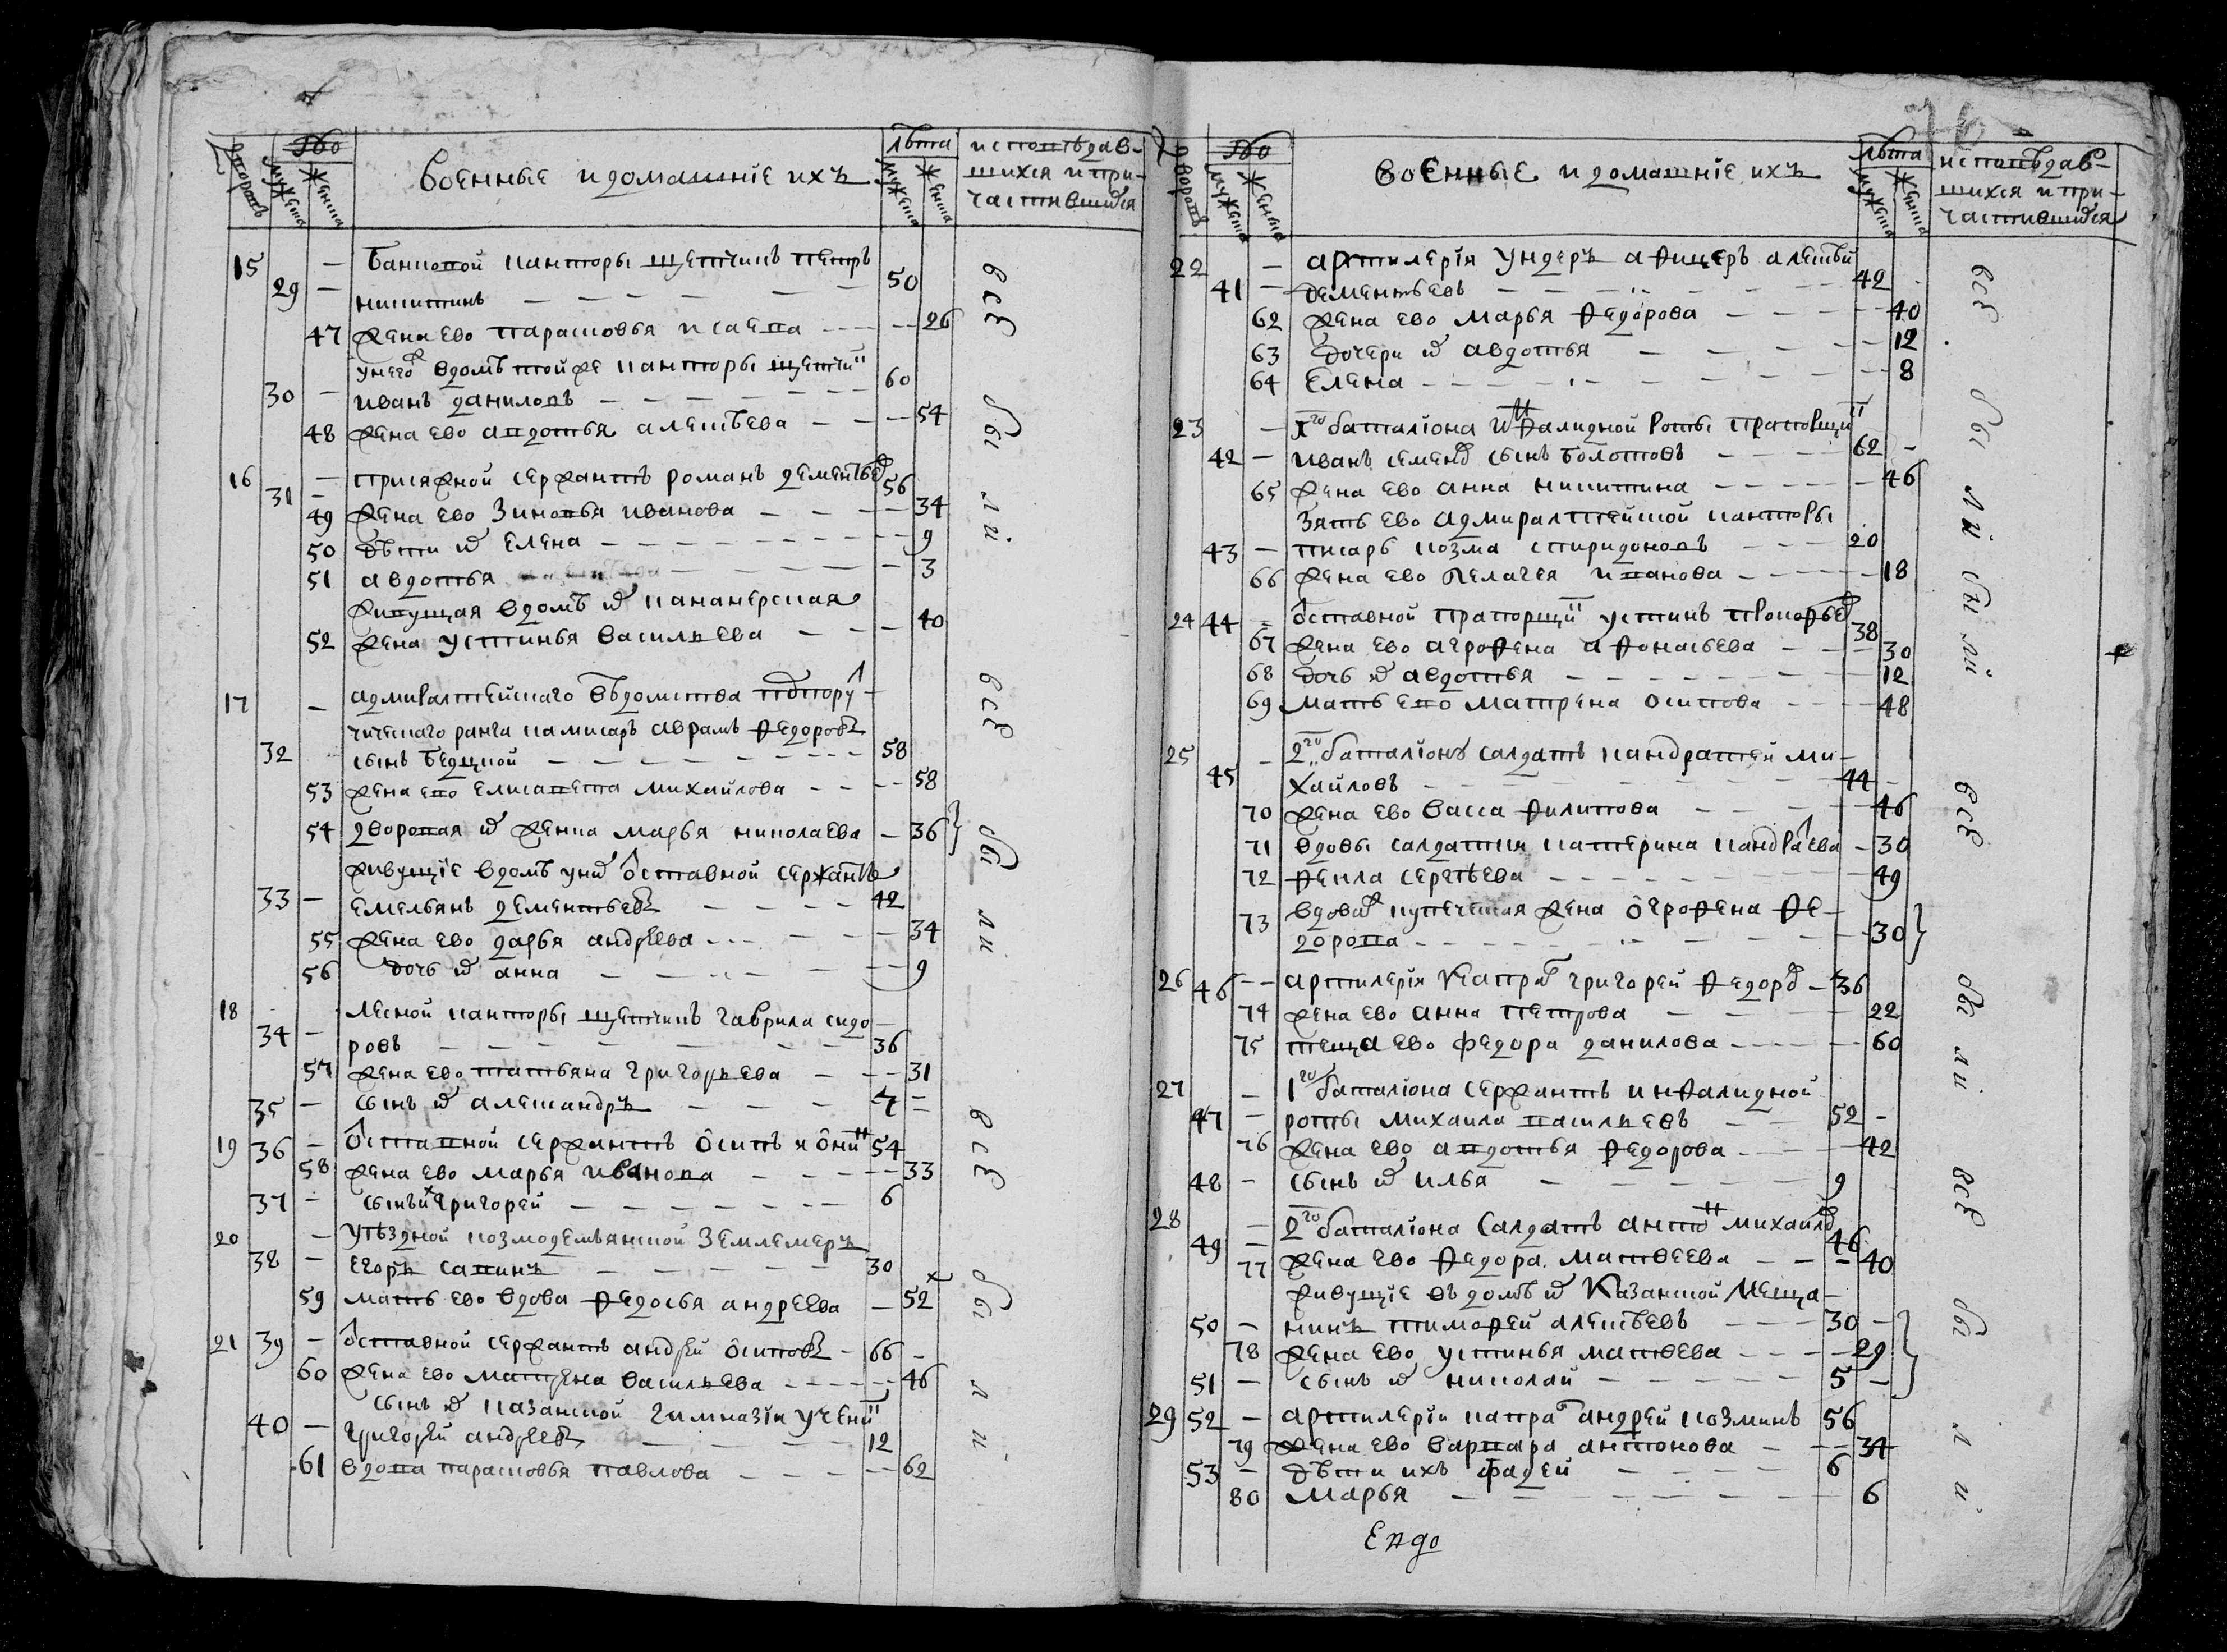 число
дворовъ
мужеска
женска
военные и домашнїе ихъ
лѣта
мужеска
женска
исповѣдав-
шихся и при-
частившихся
15 — банковой канторы щетчикъ петръ
29 — никитинъ — 50
47 жена ево парасковья исаева — 26
у него ж в домѣ той же канторы щетчик
30 — иванъ даниловъ — 60
48 жена ево авдотья алексѣева — 54
16 — присяжной сержантъ романъ дементьев
31 — 56
49 жена ево зиновья иванова — 34
50 дѣти их елена — 9
51 авдотья — 3
живущая в домѣ их
52 жена устинья васильева — 40
17 — адмиралтейскаго вѣдомства подпору-
чическаго ранга камисаръ аврамъ федоровъ
32 сынъ — 58
53 жена ево елисавета михайлова — 58
54 дворовая их женка марья николаева — 36
живущїе в домѣ у них ѿставной сержантъ
33 — емельянъ дементьевъ — 42
55 жена ево дарья андреева — 34
56 дочь их анна — 9
18 лесной канторы щетчикъ гаврила сидо-
34 — ровъ — 36
57 жена ево татьяна григорьева — 31
35 — сынъ их александръ — 7
19 36 — ѿставной сержантъ осипъ 54
58 жена ево марья иванова — 33
37 — сынъ их григорей — 6
20 — уѣздной козмодемьянской землемеръ
38 — егоръ савинъ — 30
59 мать ево вдова федосья андреева — 52
21 39 — ѿставной сержантъ андрей осиповъ — 66 —
60 жена ево матрена васильева — 46
сынъ их казанской гимназїи ученик
40 — григорей андреевъ — 12
61 вдова парасковья павлова — 62
всѣ были
всѣ были
всѣ были
76
число
дворовъ
мужеска
женска
военные и домашнїе ихъ
лѣта
мужеска
женска
исповѣдав-
шихся и при-
частившихся
22 — артилерїя ундеръ афицеръ алексѣй
41 — дементьевъ — 42
62 жена ево марья федорова — 40
63 дочери их авдотья — 12
64 елена — 8
23 — 1го баталїона инвалидной роты прапорщик
42 — иванъ семенов сынъ болотовъ — 62 —
65 жена ево анна никитина — 46
зять ево адмиралтейской канторы
43 — писарь козма спиридоновъ — 20
66 жена ево пелагея иванова — 18
24 44 — ѿставной прапорщик устинъ прокофьев 38
67 жена ево агрофена афонасьева — 30
68 дочь их авдотья — 12
69 мать ево матрена осипова — 48
25 — 2го баталїону салдатъ кандратей ми-
45 хайловъ — 44 —
70 жена ево васса филипова — 46
71 вдовы салдатки катерина кандратьева — 30
72 фекла сергѣева — 49
73 вдова ж купеческая жена огрофена фе-
дорова — 30
26 46 — артилерїя капрал григорей федоров — 36
74 жена ево анна петрова — 22
75 теща ево федора данилова — 60
27 — 1го баталїона сержантъ инвалидной
47 — роты михаила васильевъ — 52 —
76 жена ево авдотья федорова — 42
48 — сынъ их илья — 9
28 — 2го баталїона салдатъ антон михайлов
49 — 46
77 жена ево федора матвеева — 40
живущїе въ домѣ их казанской меща-
50 — нинъ тимофей алексѣевъ — 30 —
78 жена ево устинья матвеева — 29
51 — сынъ их николай — 5 —
29 52 — артилерїи капрал андрей козминъ 56
79 жена ево варвара антонова — 34
53 — дѣти ихъ фадей — 6
80 марья — 6
всѣ были
были
всѣ были
всѣ были